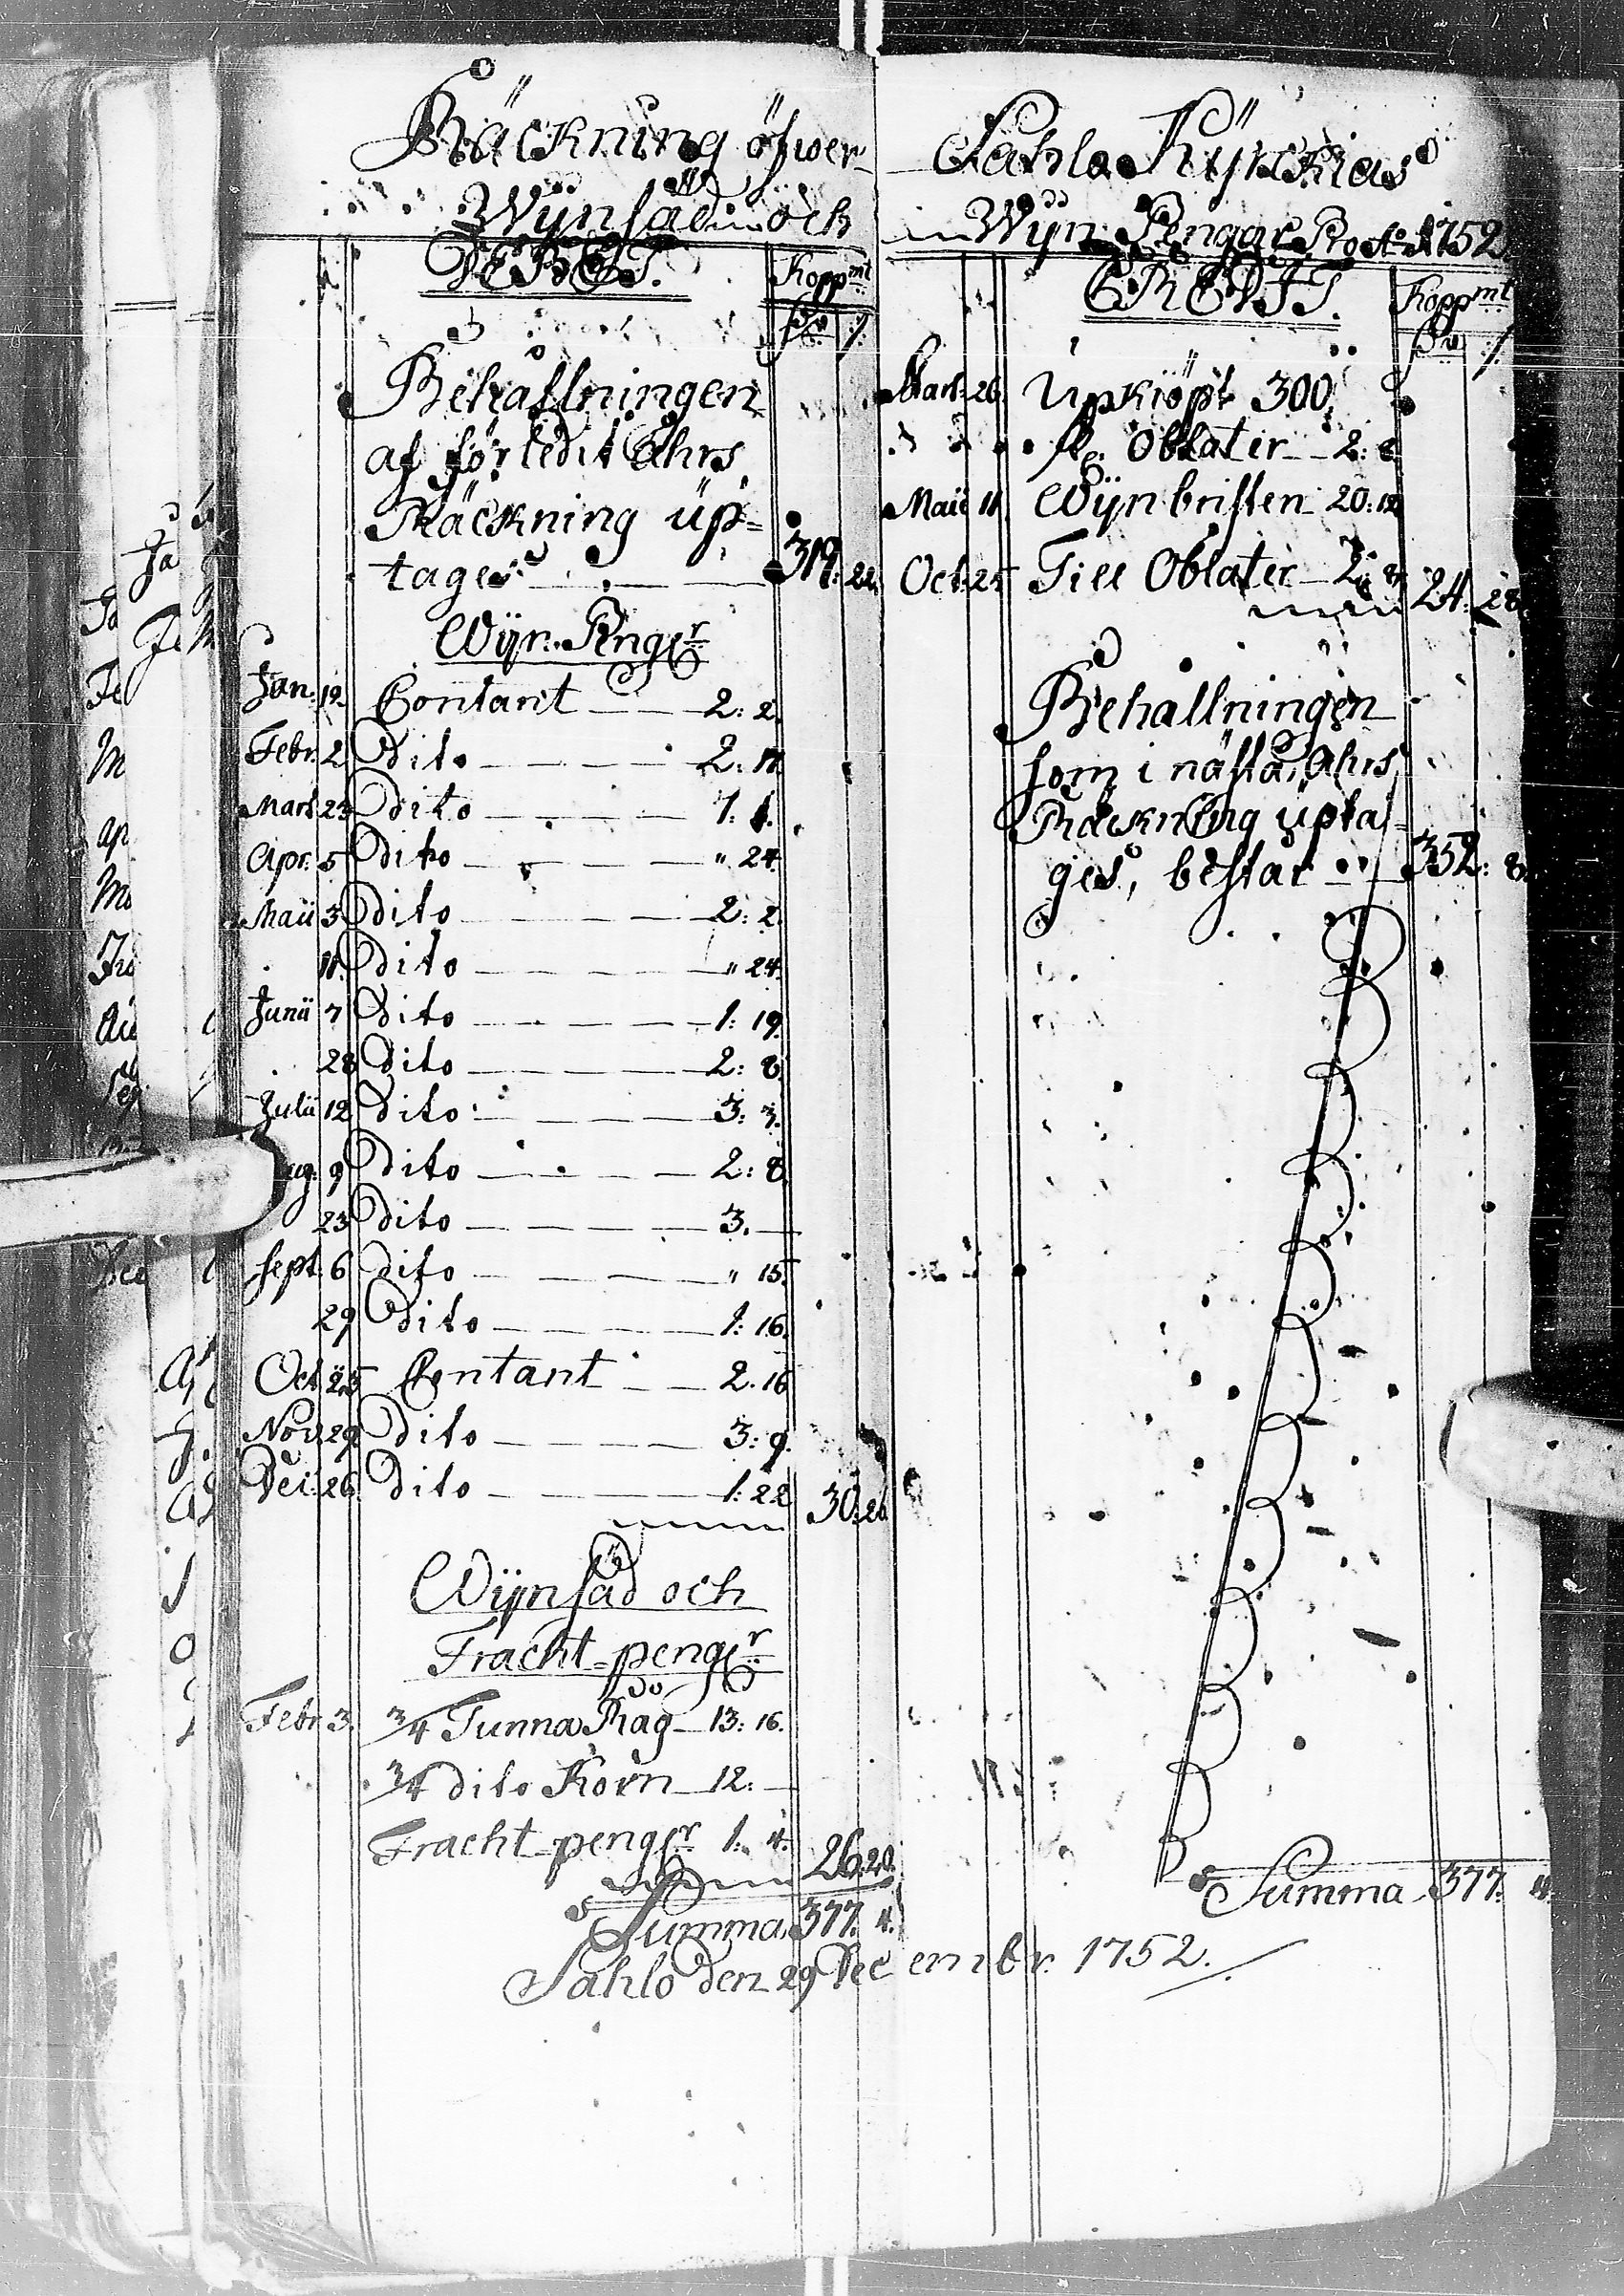 Räckning öfwer
Wijnsäd och
DEBET.
Kopp mt
Behållningen
af förledit Åhrs
Räckning up=
tages 319: 22
Wijn-Pengr
Jan: 19. Contant 2: 2.
Febr. 2 Dito 2: 11.
Mart 23 Dito 1: 1.
Apr: 5 Dito " 24.
Maii 3 Dito 2: 2.
11. Dito " 24.
Junii 7 Dito 1: 19.
28 Dito 2: 8.
Julii 12 Dito 3: 3.
ug: 9 Dito 2: 8.
23 Dito 3. —
Sept: 6 Dito " 15
29 Dito 1: 16.
Oct: 25 Contant 2. 16
Nov. 29 Dito 3: 9.
Dec: 26 Dito 1: 22 30: 26
Wijnsäd och
Fracht-pengr
Febr. 3. 3/4 Tunna Råg 13: 16.
3/4 dito Korn 12: —
Fracht-pengr 1: 4. 26: 20.
Summa 377. 4.
Sahlo den 29 Decembr. 1752.
Sahlo Kyrckias
Wijn Pengar Pro Ao 1752
CREDIT.
Kopp mt
Mart: 26 Upkiöpt 300
st. Oblater 2: 8
Maii 11 Wijnbristen 20: 12
Oct: 25 Till Oblater 2: 8 24: 28
Behållningen
som i nästa Åhrs
Räckning upta=
ges, består 352: 8.
Summa 377. 4.